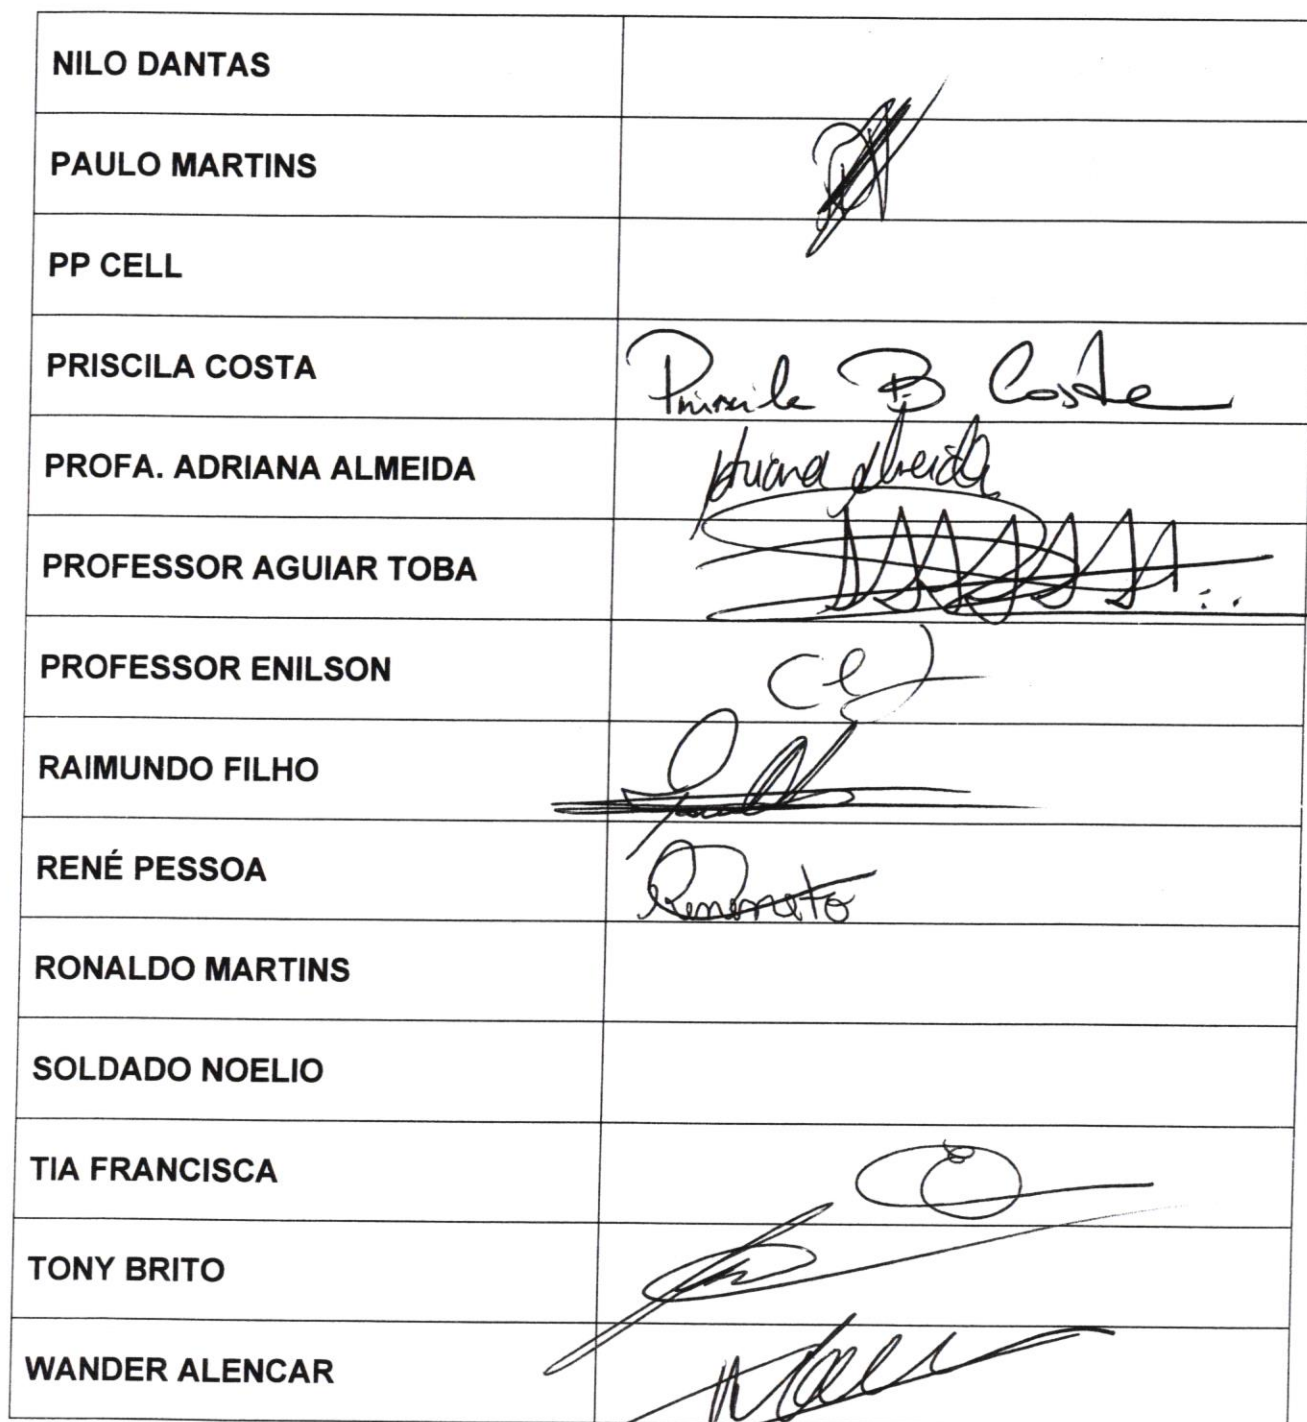 NILO DANTAS
PAULO MARTINS
PP CELL
PRISCILA COSTA Priscila B Costa
PROFA. ADRIANA ALMEIDA Adriana Almeida
PROFESSOR AGUIAR TOBA
PROFESSOR ENILSON
RAIMUNDO FILHO
RENÉ PESSOA
RONALDO MARTINS
SOLDADO NOELIO
TIA FRANCISCA
TONY BRITO
WANDER ALENCAR